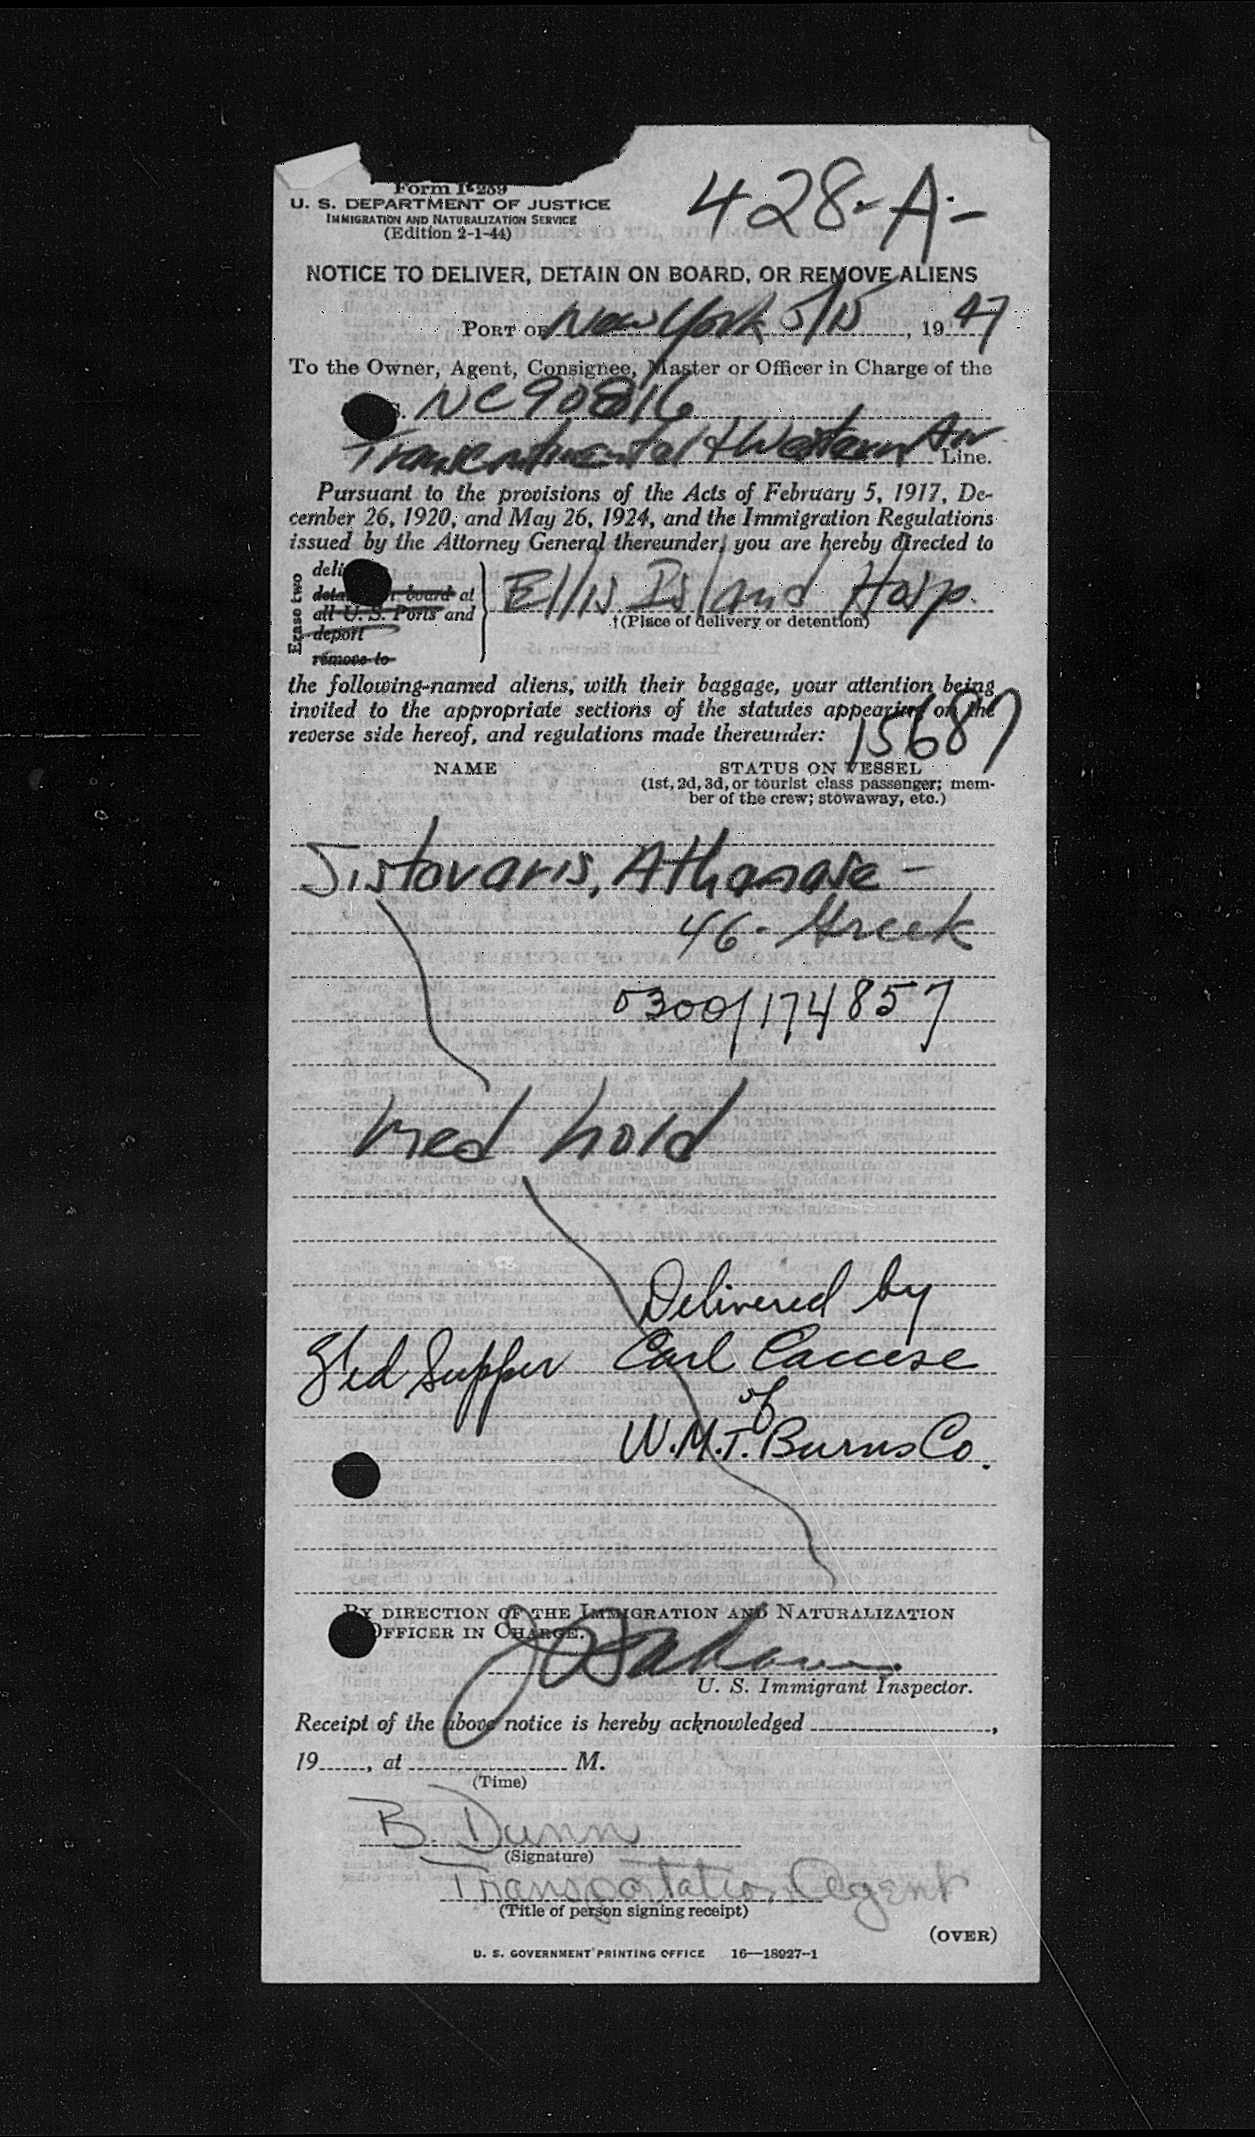 Form I-259
U. S. DEPARTMENT OF JUSTICE
IMMIGRATION AND NATURALIZATION SERVICE
(Edition 2-1-44)
428-A-
NOTICE TO DELIVER, DETAIN ON BOARD, OR REMOVE ALIENS
PORT OF New York 5/15, 1947
To the Owner, Agent, Consignee, Master or Officer in Charge of the
S. NC90816
Transcontinental & Western Air Line.
Pursuant to the provisions of the Acts of February 5, 1917, De-
cember 26, 1920, and May 26, 1924, and the Immigration Regulations
issued by the Attorney General thereunder, you are hereby directed to
Erase two
board at
all U. S. Ports and
deport
remove to
Ellis Island Hosp.
†(Place of delivery or detention)
the following-named aliens, with their baggage, your attention being
invited to the appropriate sections of the statutes appearing on the
reverse side hereof, and regulations made thereunder:
15687
NAME
STATUS ON VESSEL
(1st, 2d, 3d, or tourist class passenger; mem-
ber of the crew; stowaway, etc.)
Sistovaris, Athanase -
46 - Greek
0300/174857
Med hold
Delivered by
Supper Carl Caccese
of
W.M.J. Burns Co.
BY DIRECTION OF THE IMMIGRATION AND NATURALIZATION
OFFICER IN CHARGE.
U. S. Immigrant Inspector.
Receipt of the above notice is hereby acknowledged ,
19 , at M.
(Time)
B. Dunn
(Signature)
Transportation Agent
(Title of person signing receipt)
(OVER)
U. S. GOVERNMENT PRINTING OFFICE 16—18927-1